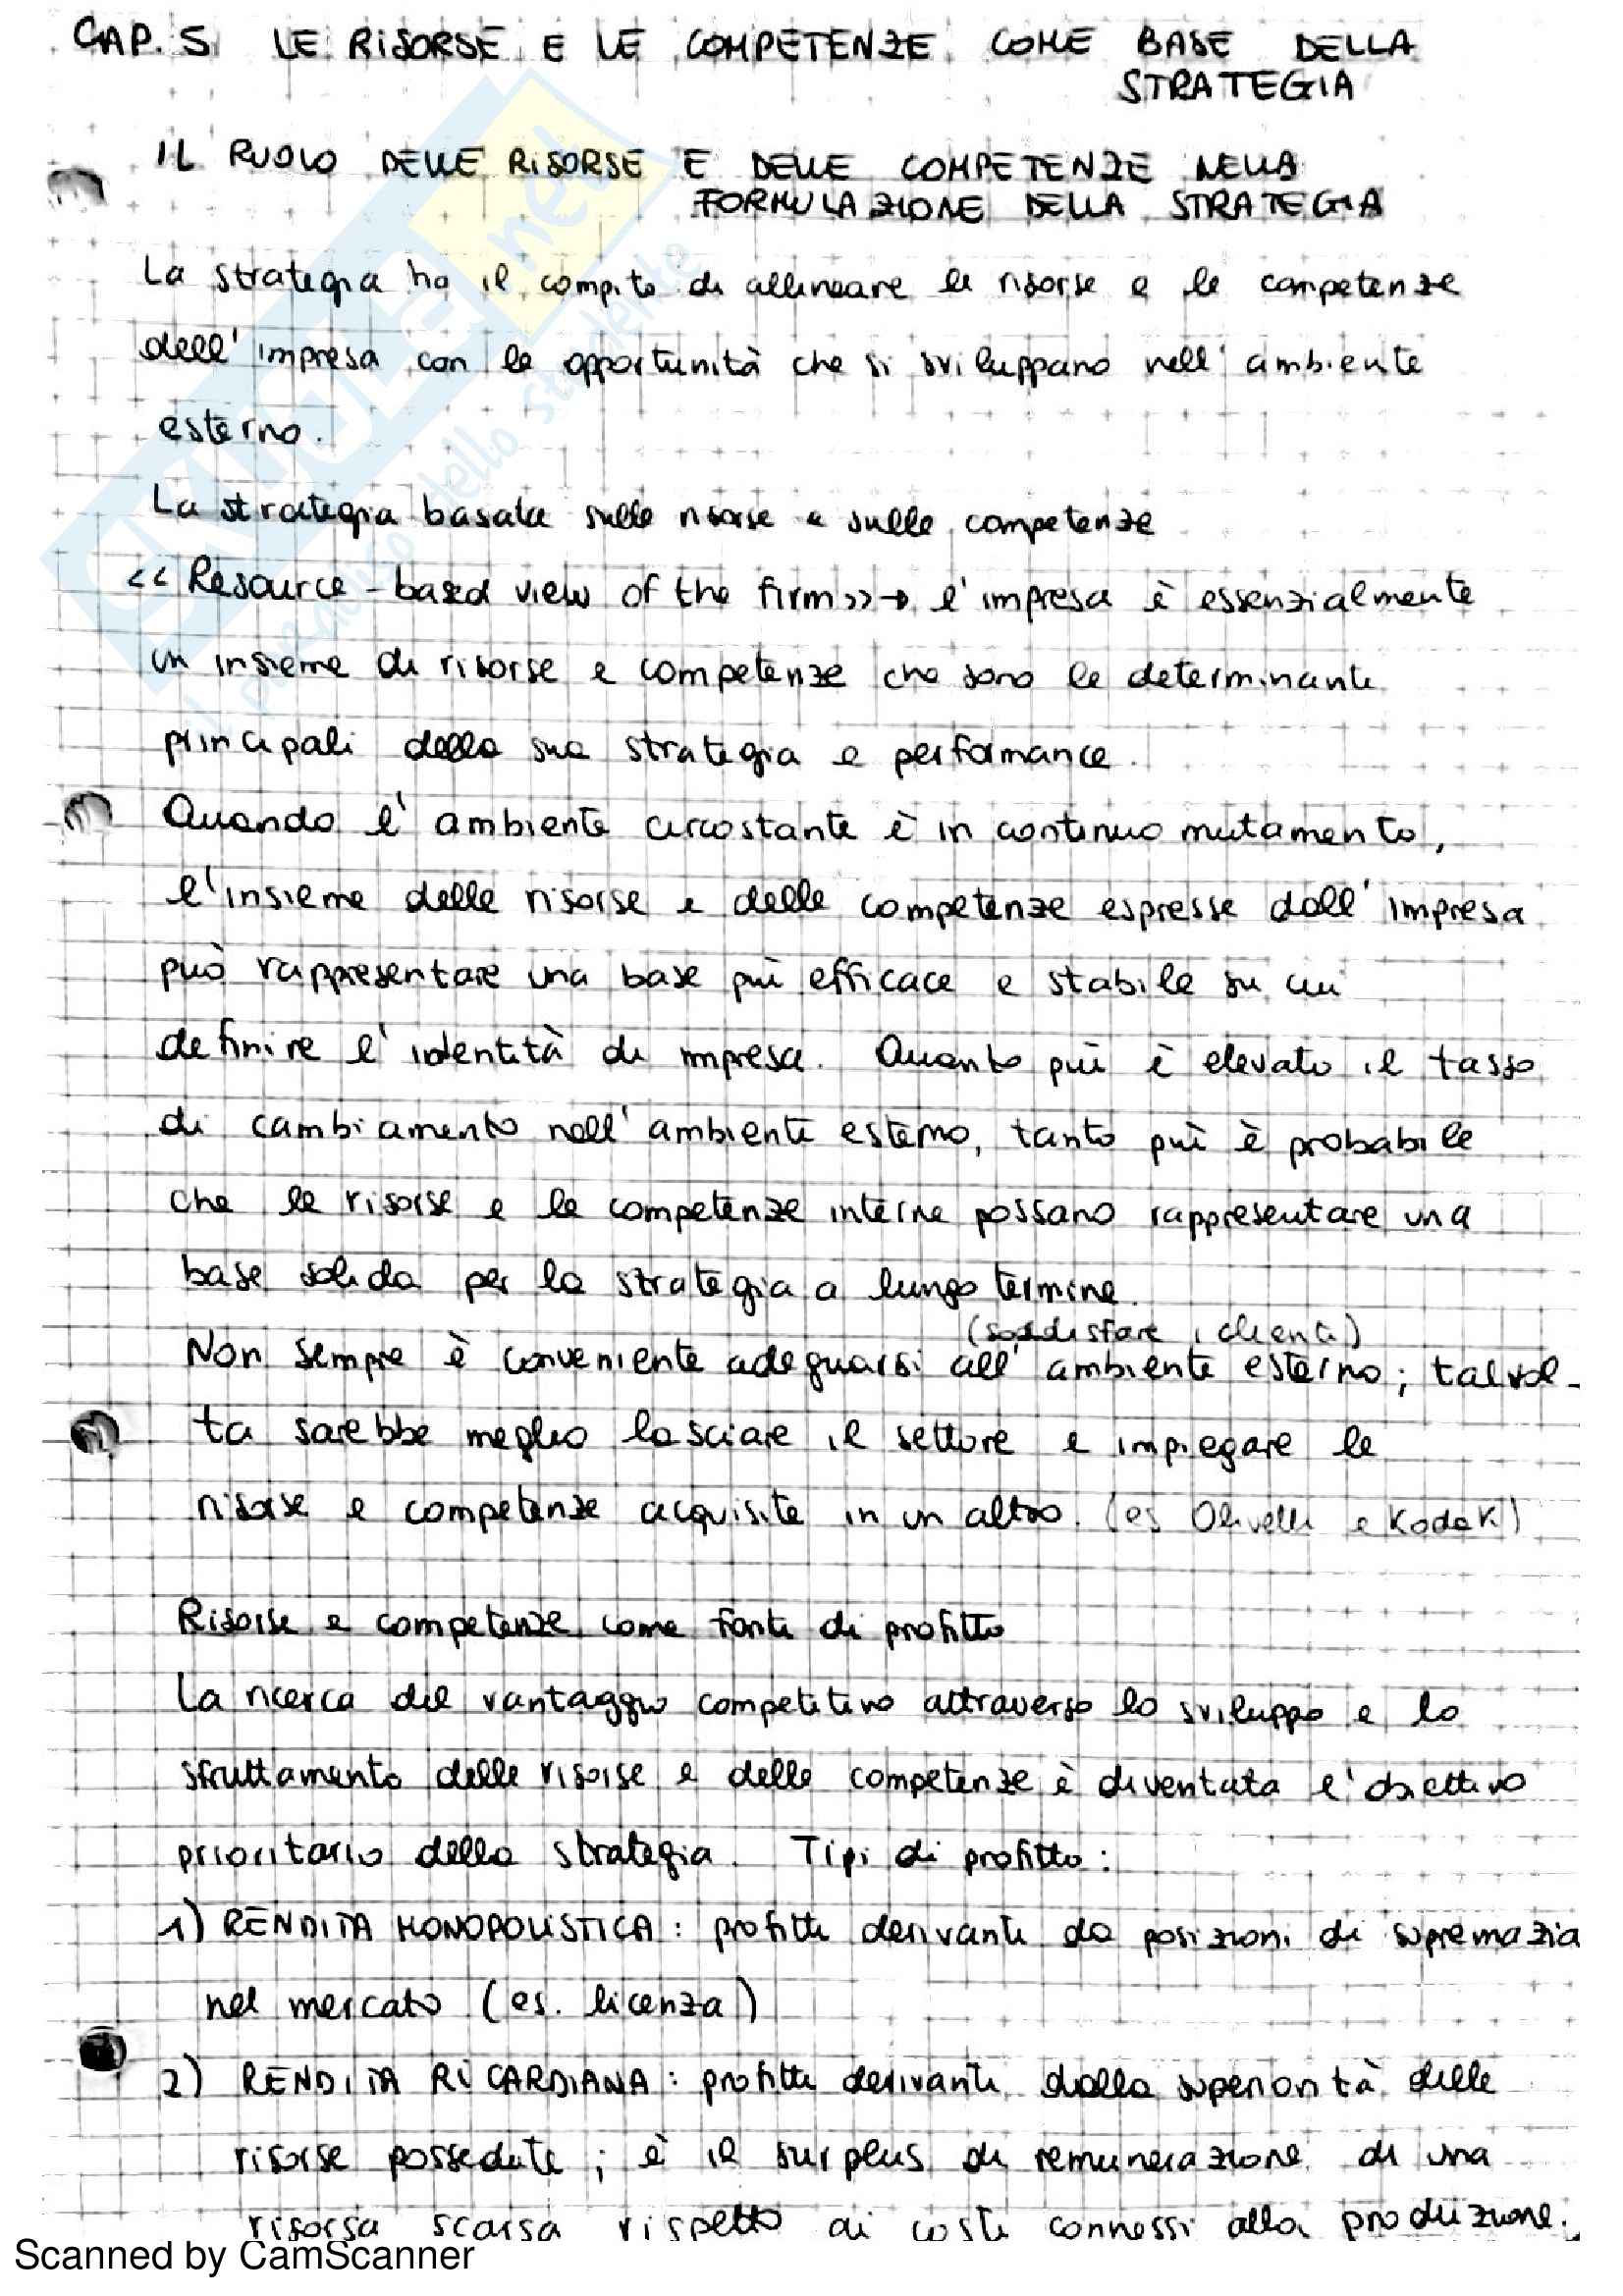 CAP. 5 LE RISORSE E LE COMPETENZE COME BASE DELLA
STRATEGIA
IL RUOLO DELLE RISORSE E DELLE COMPETENZE NELLA
FORMULAZIONE DELLA STRATEGIA
La strategia ha il compito di allineare le risorse e le competenze
dell'impresa con le opportunità che si sviluppano nell'ambiente
esterno.
La strategia basata sulle risorse e sulle competenze
<< Resource-based view of the firm>> → l'impresa è essenzialmente
un insieme di risorse e competenze che sono le determinanti
principali della sua strategia e performance.
Quando l'ambiente circostante è in continuo mutamento,
l'insieme delle risorse e delle competenze espresse dall'impresa
può rappresentare una base più efficace e stabile su cui
definire l'identità di impresa. Quanto più è elevato il tasso
di cambiamento nell'ambiente esterno, tanto più è probabile
che le risorse e le competenze interne possano rappresentare una
base solida per la strategia a lungo termine.
(soddisfare i clienti)
Non sempre è conveniente adeguarsi all'ambiente esterno; talvol-
ta sarebbe meglio lasciare il settore e impiegare le
risorse e competenze acquisite in un altro. (es Olivetti e Kodak)
Risorse e competenze come fonti di profitto
La ricerca del vantaggio competitivo attraverso lo sviluppo e lo
sfruttamento delle risorse e delle competenze è diventata l'obiettivo
prioritario della strategia. Tipi di profitto:
1) RENDITA MONOPOLISTICA: profitti derivanti da posizioni di supremazia
nel mercato (es. licenza)
2) RENDITA RICARDIANA: profitti derivanti dalla superiorità delle
risorse possedute; è il surplus di remunerazione di una
risorsa scarsa rispetto ai costi connessi alla produzione.
Scanned by CamScanner
skuola.net
il paradiso dello studente